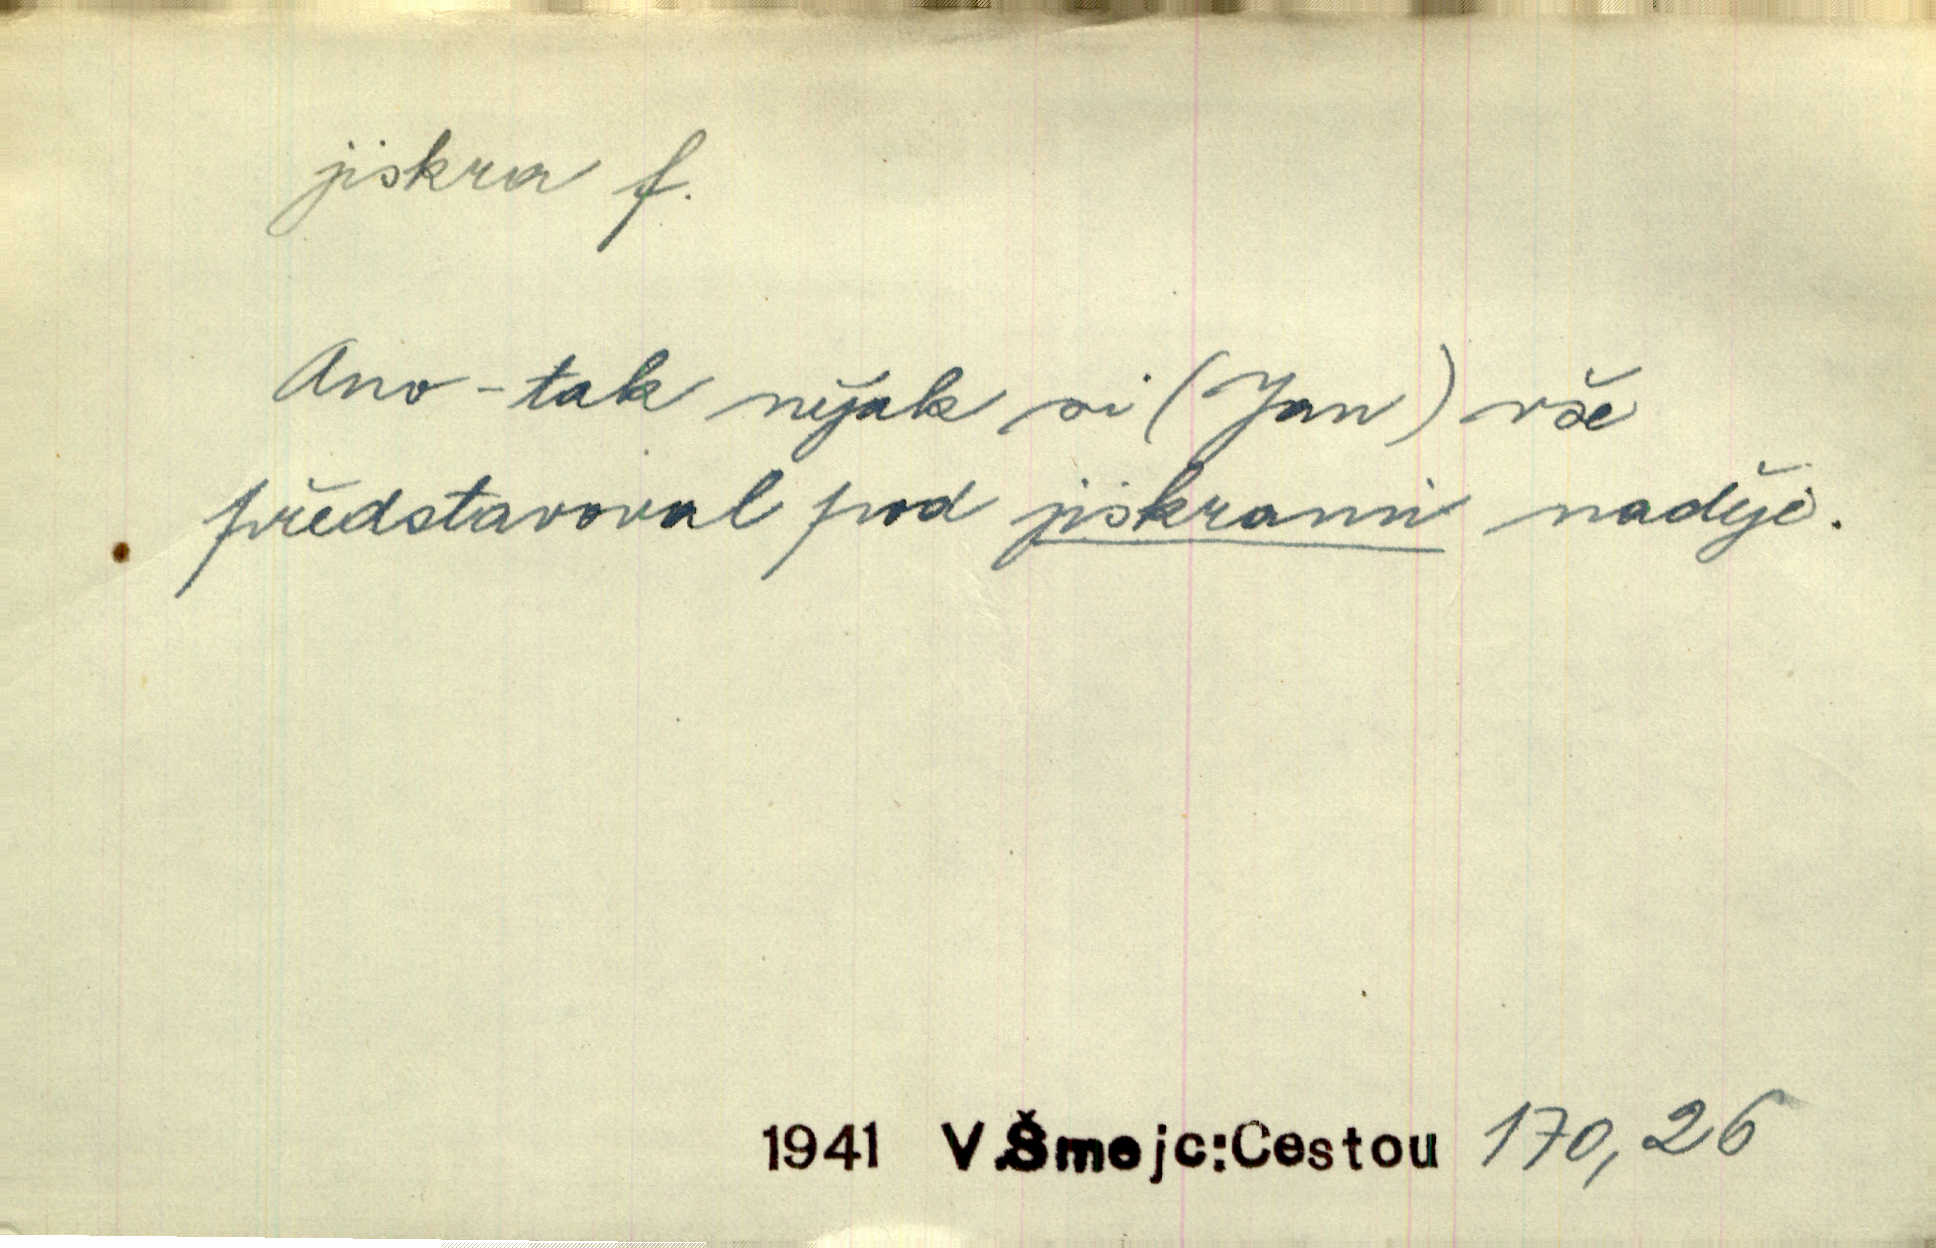 jiskra f.
Ano - tak nějak si (Jan) vše
představoval pod jiskrami naděje.
1941 V.Šmejc:Cestou 170,26